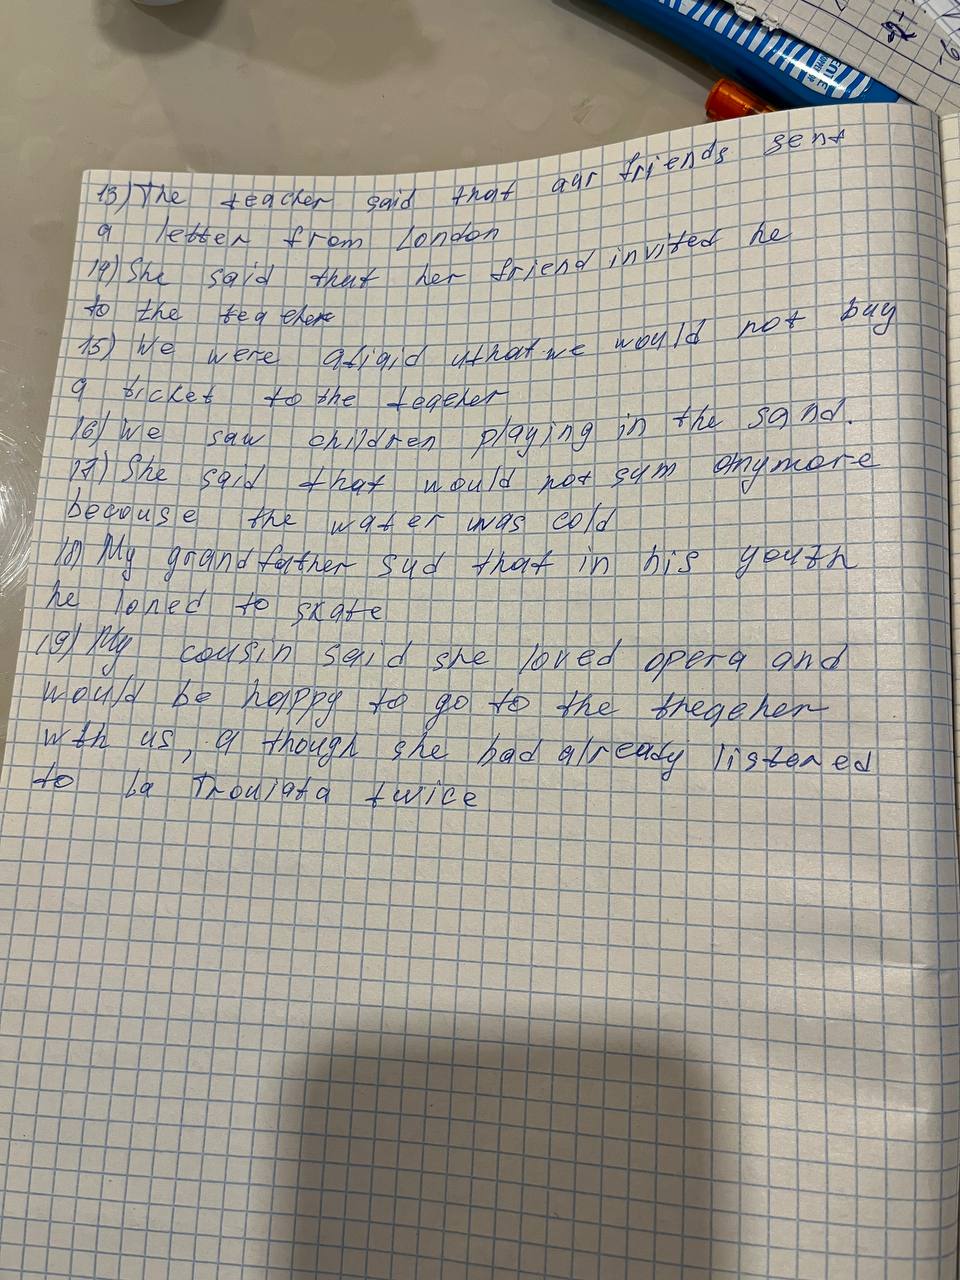 13) The teacher said that our friends sent
a letter from London
14) She said that her friend invited he
to the teacher
15) We were afraid that we would not buy
a ticket to the teacher
16) We saw children playing in the sand.
17) She said that would not sym anymore
because the water was cold
18) My grandfather sud that in his youth
he loned to skate
19) My cousin said she loved opera and
would be happy to go to the
wth us, a though she had already listened
to La Troviata twice